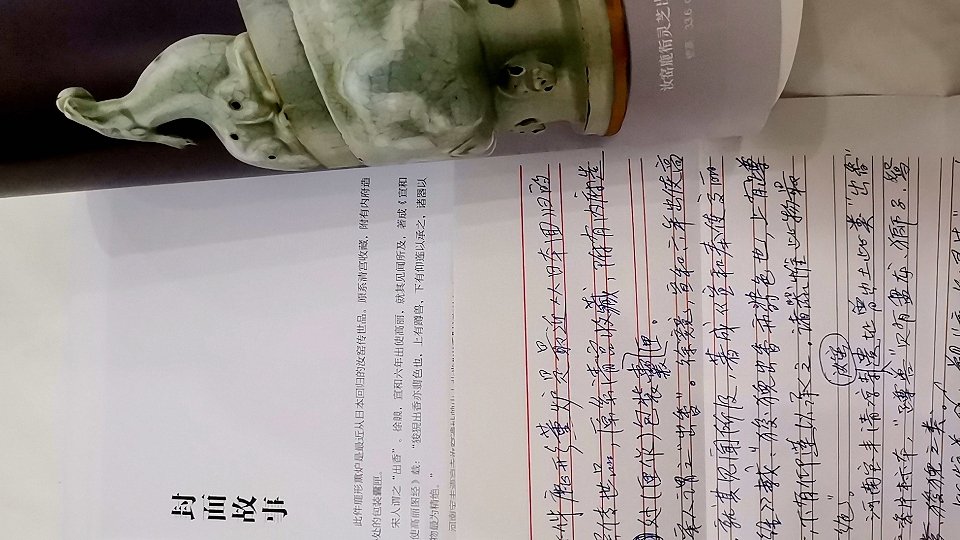 汝窑鹿衔灵芝出
33.6 c
封面故事
此件鹿形熏炉是最近从日本回归的汝窑传世品。原系清宫收藏，附有内府造
处的包装囊匣。
宋人谓之“出香”。徐兢，宣和六年出使高丽，就其见闻所及，著成《宣和
使高丽图经》载：“狻猊出香亦翡色也，上有蹲兽，下有仰莲以承之，诸器以
物最为精绝。”
件鹿形薰炉是最近从日本回归的
传世品，原系清宫收藏，附有内府造
处包装囊匣。
宋人谓之“出香”。徐兢，宣和六年出使高
就其见闻所及，著成《宣和奉使高丽
经》载，“狻猊出香亦翡色也，上有蹲
下有仰莲以承之。诸器惟此物最
绝”。
汝窑
河南宝丰清凉寺遗址曾出土此类“出香”
标本，“蹲兽”只有龙、狮子、鸳
狻猊之类。